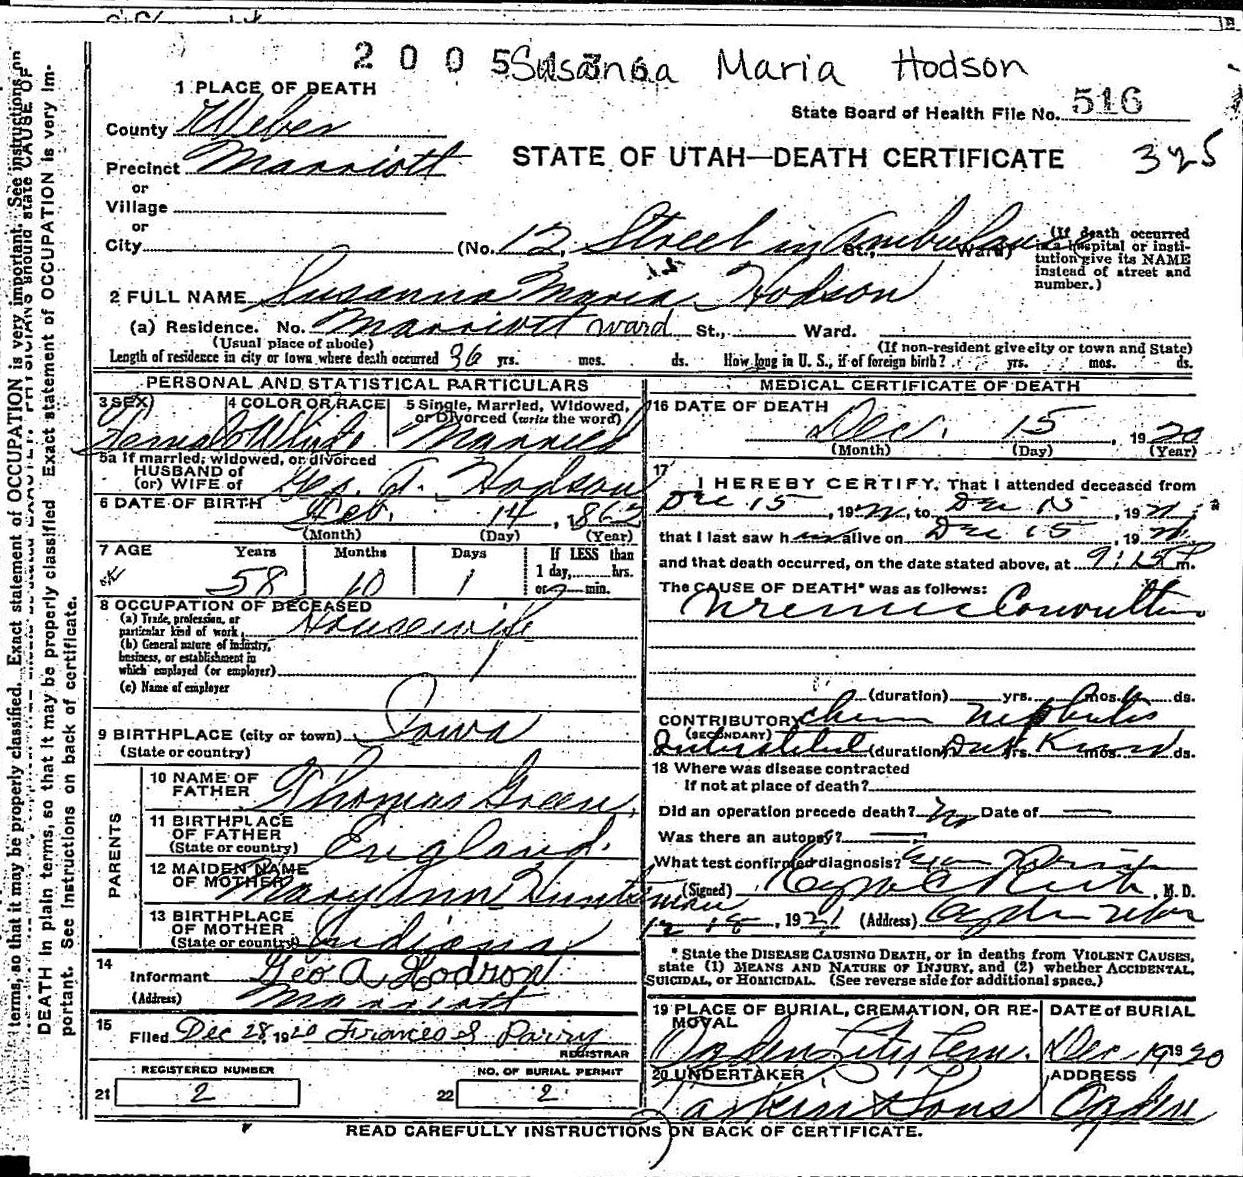 2005 Susanna Maria Hodson
1 PLACE OF DEATH
State Board of Health File No. 516
County Weber
STATE OF UTAH—DEATH CERTIFICATE 325
Precinct Marriott
or
Village
or
City (No. 12, Street in Ambulance St., Ward)
(If death occurred in a hospital or institution give its NAME instead of street and number.)
2 FULL NAME Susanna Maria Hodson
(a) Residence. No. Marriott ward St., Ward.
(Usual place of abode) (If non-resident give city or town and State)
Length of residence in city or town where death occurred 36 yrs. mos. ds. How long in U. S., if of foreign birth? yrs. mos. ds.
PERSONAL AND STATISTICAL PARTICULARS
3 SEX Female
4 COLOR OR RACE White
5 Single, Married, Widowed, or Divorced (write the word) Married
5a If married, widowed, or divorced
HUSBAND of
(or) WIFE of Geo. A. Hodson
6 DATE OF BIRTH Feb. 14, 1862
(Month) (Day) (Year)
7 AGE Years Months Days If LESS than
58 10 1 1 day, hrs.
or min.
8 OCCUPATION OF DECEASED
(a) Trade, profession, or particular kind of work Housewife
(b) General nature of industry, business, or establishment in which employed (or employer)
(c) Name of employer
9 BIRTHPLACE (city or town) Iowa
(State or country)
PARENTS
10 NAME OF FATHER Thomas Green
11 BIRTHPLACE OF FATHER England.
(State or country)
12 MAIDEN NAME OF MOTHER Mary Ann Huntsman
13 BIRTHPLACE OF MOTHER Indiana
(State or country)
14
Informant Geo A Hodson
(Address) Marriott
15
Filed Dec 28 1920 Frances S Parry
REGISTRAR
REGISTERED NUMBER NO. OF BURIAL PERMIT
21 2 22 2
MEDICAL CERTIFICATE OF DEATH
16 DATE OF DEATH
Dec. 15, 1920
(Month) (Day) (Year)
17
I HEREBY CERTIFY, That I attended deceased from
Dec 15, 19 to Dec 15, 19
that I last saw h alive on Dec 15, 19
and that death occurred, on the date stated above, at 9:15 P m.
The CAUSE OF DEATH* was as follows:
Uremic Convultions
(duration) yrs. mos. ds.
CONTRIBUTORY Chron Nephritis
(SECONDARY)
Interstitial (duration) Not Known yrs. mos. ds.
18 Where was disease contracted
If not at place of death?
Did an operation precede death? No Date of —
Was there an autopsy? —
What test confirmed diagnosis?
(Signed) , M. D.
12-18, 1921 (Address) Ogden Utah
* State the DISEASE CAUSING DEATH, or in deaths from VIOLENT CAUSES,
state (1) MEANS AND NATURE OF INJURY, and (2) whether ACCIDENTAL,
SUICIDAL, or HOMICIDAL. (See reverse side for additional space.)
19 PLACE OF BURIAL, CREMATION, OR REMOVAL DATE of BURIAL
Ogden City Cem. Dec 19 1920
20 UNDERTAKER ADDRESS
Larkin & Sons Ogden
READ CAREFULLY INSTRUCTIONS ON BACK OF CERTIFICATE.
terms, so that it may be properly classified. Exact statement of OCCUPATION is very important. See instructions on
DEATH in plain terms, so that it may be properly classified. Exact statement of OCCUPATION is very important. See instructions on back of certificate.